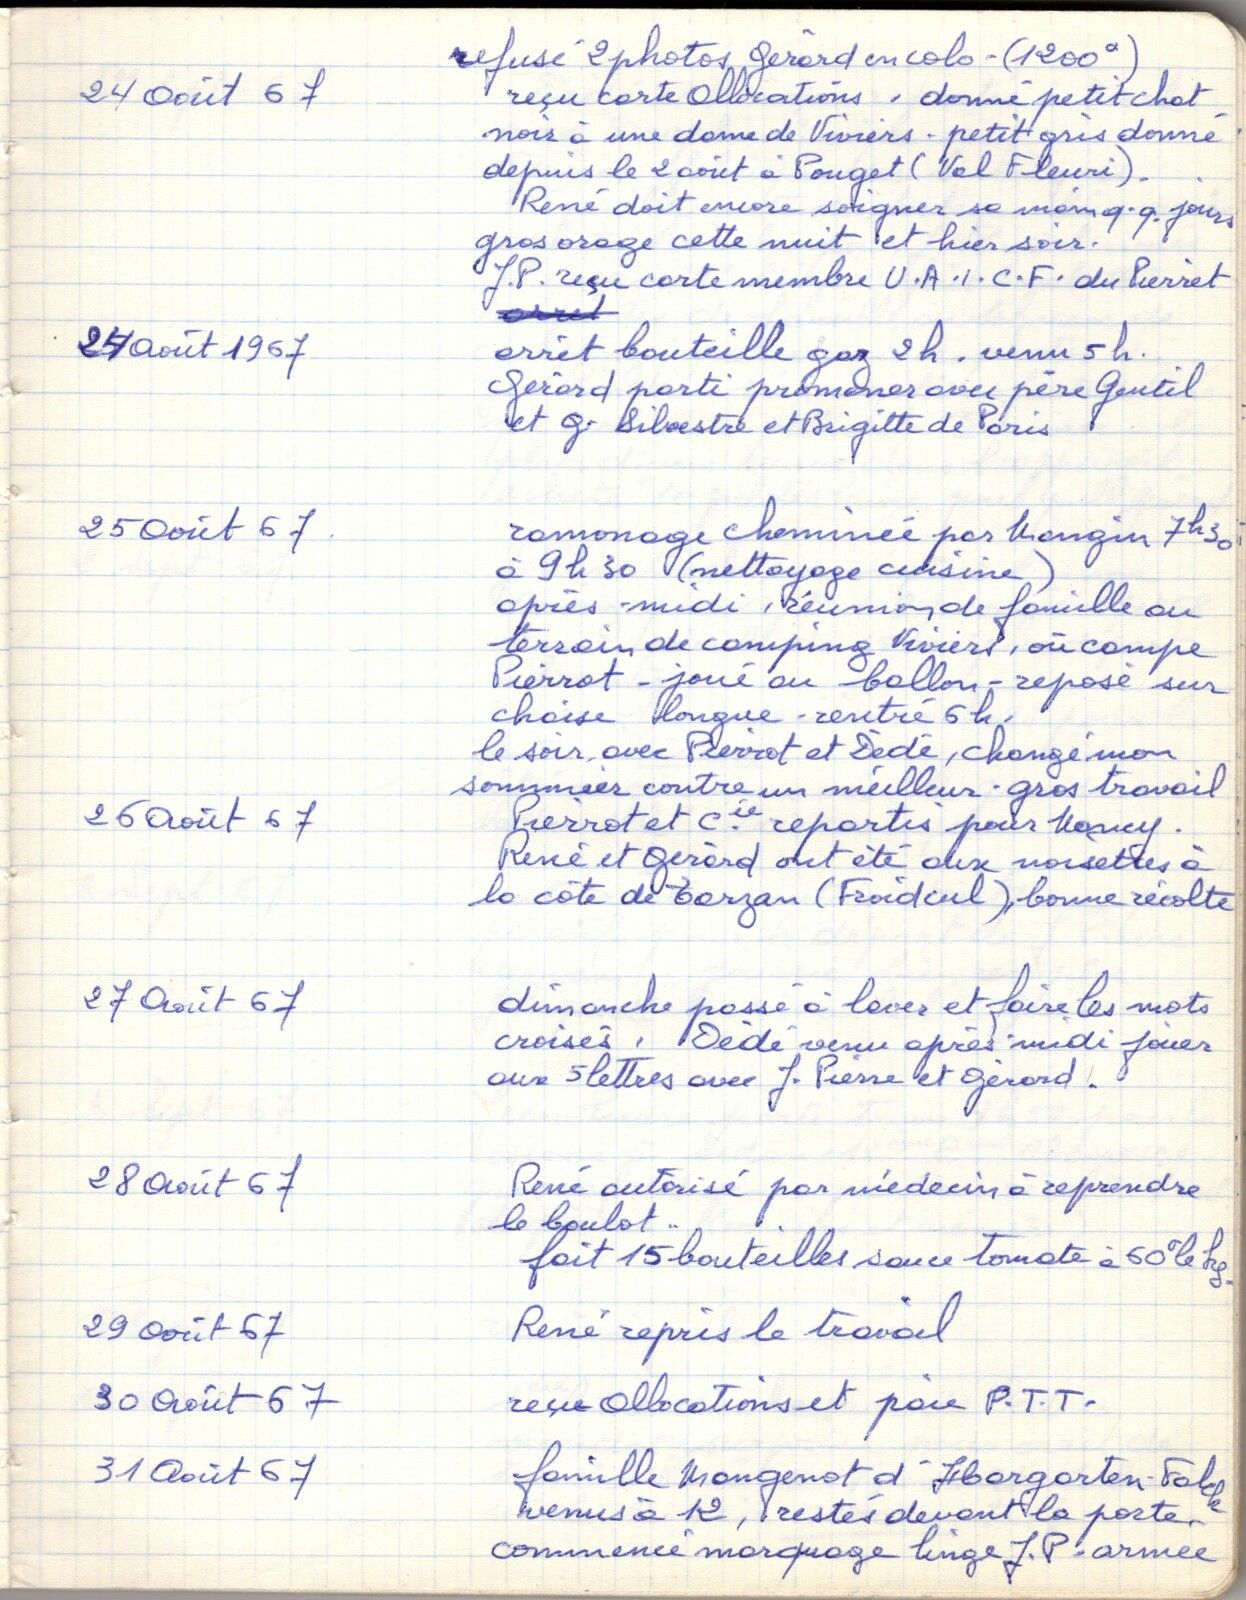 refusé 2 photos Gérard en colo - (1200°)
24 Août 67 reçu carte Allocations, donné petit chat
noir à une dame de Viviers - petit gris donné
depuis le 2 août à Pouget (Val Fleuri).
René doit encore soigner sa main q.q. jours
gros orage cette nuit et hier soir.
J.P. reçu carte membre U.A.I.C.F. du Pierret
arret
24 Août 1967 arrêt bouteille gaz 2h. venu 5h.
Gérard parti promener avec père Gentil
et g. Silvestre et Brigitte de Paris
25 Août 67. ramonage cheminée par Mangin 7h30
à 9h30 (nettoyage cuisine)
après-midi, réunion de famille au
terrain de camping Viviers, où campe
Pierrot - joué au ballon - reposé sur
chaise longue - rentré 6h.
le soir, avec Pierrot et Dédé, changé mon
sommier contre un meilleur. gros travail
26 Août 67 Pierrot et Cie repartis pour Nancy.
René et Gérard ont été aux noisettes à
la côte de Tarzan (Froidcul), bonne récolte
27 Août 67 dimanche passé à laver et faire les mots
croisés, Dédé venu après-midi jouer
aux 5 lettres avec J. Pierre et Gérard.
28 Août 67 René autorisé par médecin à reprendre
le boulot..
fait 15 bouteilles sauce tomate à 60° le kg.
29 Août 67 René repris le travail
30 Août 67 reçu Allocations et paie P.T.T.
31 Août 67 famille Mangenot d'Hargarten-Falck
venus à 12, restés devant la porte.
commencé marquage linge J.P. armée